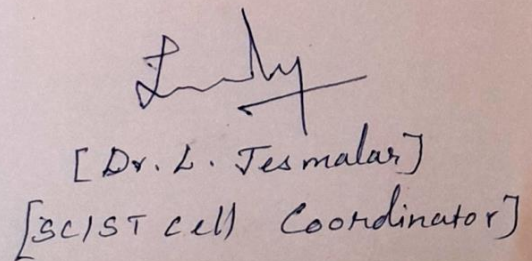 [Dr. L. Jesmalar]
[SC/ST Cell Coordinator]